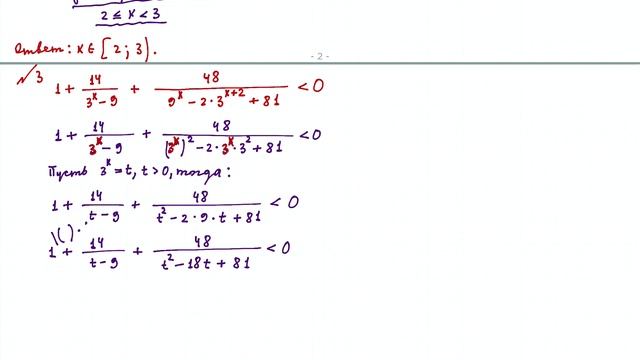 2 ≤ x < 3
Ответ: x ∈ [2; 3).
- 2 -
№3
1 + 14/(3^x − 9) + 48/(9^x − 2·3^(x+2) + 81) < 0
1 + 14/(3^x − 9) + 48/((3^x)^2 − 2·3^x·3^2 + 81) < 0
Пусть 3^x = t, t > 0, тогда:
1 + 14/(t − 9) + 48/(t^2 − 2·9·t + 81) < 0
1 + 14/(t − 9) + 48/(t^2 − 18t + 81) < 0